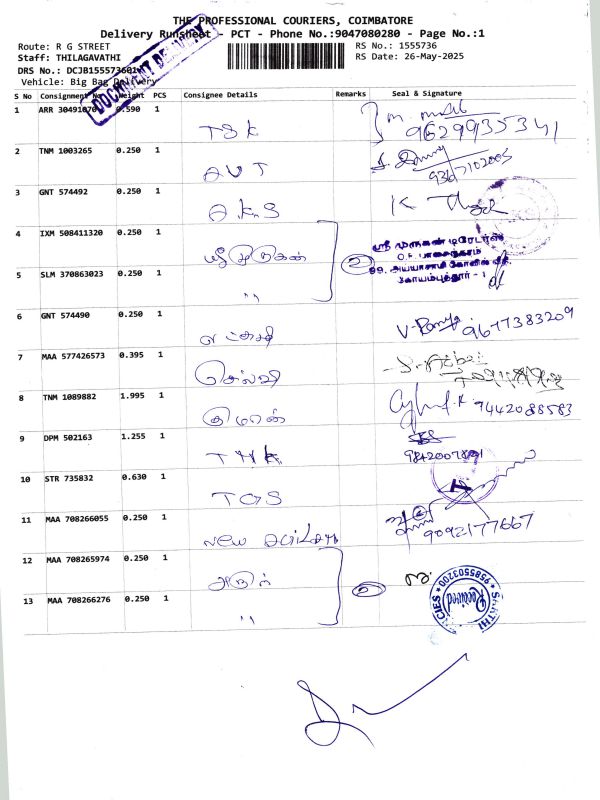 THE PROFESSIONAL COURIERS, COIMBATORE
Delivery Runsheet - PCT - Phone No.:9047080280 - Page No.:1
Route: R G STREET
RS No.: 1555736
Staff: THILAGAVATHI
RS Date: 26-May-2025
DRS No.:
Vehicle: Big Bag Delivery
DOCUMENT DELIVERY
S No Consignment Weight PCS Consignee Details Remarks Seal & Signature
1 ARR 0.590 1 TSK 9629935341
2 TNM 1003265 0.250 1 AVT
3 GNT 574492 0.250 1 A.K.S K
4 IXM 508411320 0.250 1 ஸ்ரீ முருகன் 2 ஸ்ரீ முருகன் டிரேடர்ஸ்
5 SLM 370863023 0.250 1 " கோயம்புத்தூர் - 1
6 GNT 574490 0.250 1 9677383209
7 MAA 577426573 0.395 1 செல்வி
8 TNM 1089882 1.995 1 குமரன் 9442088583
9 DPM 502163 1.255 1 THK
10 STR 735832 0.630 1 TGS
11 MAA 708266055 0.250 1 New 9092177667
12 MAA 708265974 0.250 1 அருள் 2
13 MAA 708266276 0.250 1 "
SAKTHI
9585503200
Received